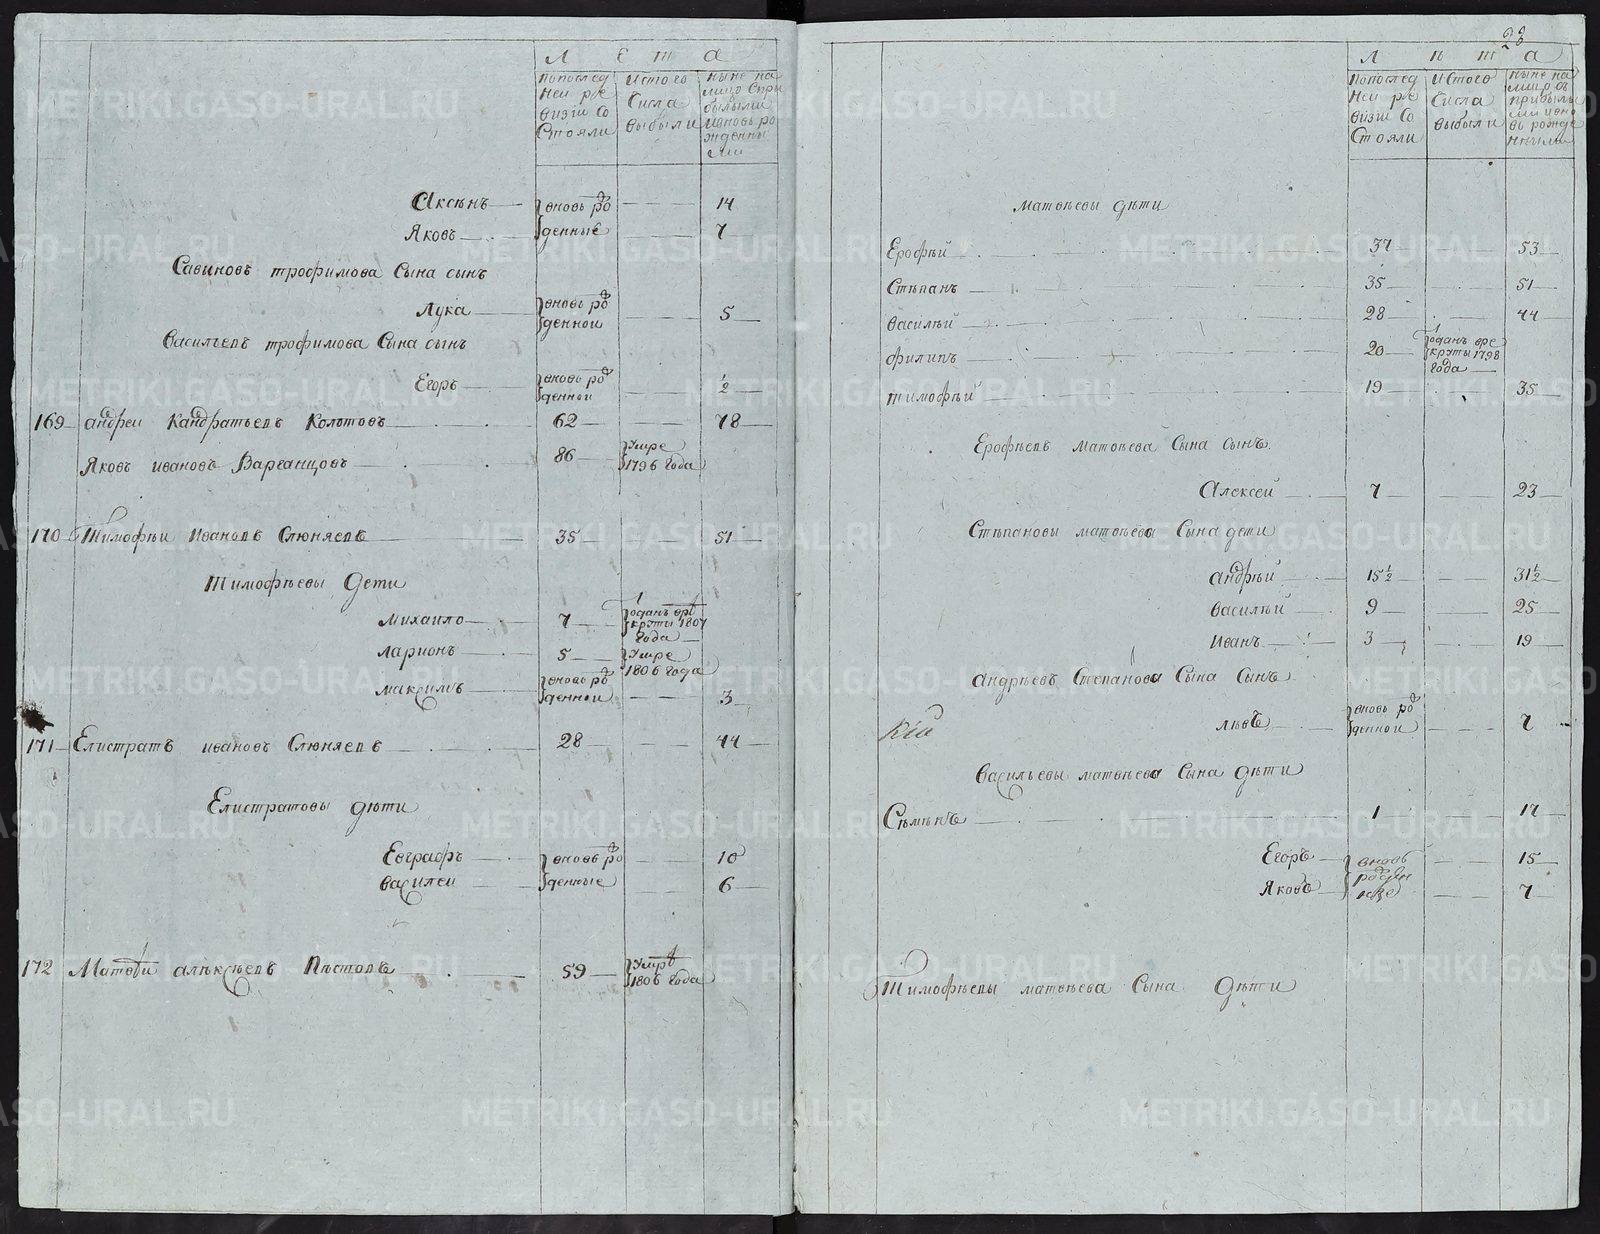 Лета
По послед ней ре визии со стояли
Ис того числа выбыли
Ныне на лицо с при былыми и вновь ро жденны ми
Аксѣнъ вновь ро 14
Яковъ жденные 7
Савиновъ трофимова сына сынъ
Лука вновь ро жденной 5
Васильевъ трофимова сына сынъ
Егоръ вновь ро жденной ½
169 андреи Кандратьевъ Колотовъ 62 78
Яковъ ивановъ Варганцовъ 86 Умре 1796 года
170 Тимофѣи Ивановъ Слюняевъ 35 51
Тимофѣевы дети
Михаило 7 отданъ вре круты 1807 года
Ларионъ 5 Умре 1806 года
максимъ вновь ро жденной 3
171 Елистратъ ивановъ Слюняевъ 28 44
Елистратовы дѣти
Евграфъ вновь ро 10
Василеи жденные 6
172 Матвѣи алѣксѣевъ Пѣстовъ 59 Умре 1806 года
23
Лѣта
По послед ней ре визии со стояли
Ис того числа выбыли
ныне на лицо съ прибылы ми и вно вь рожде нными
матвѣевы дѣти
Ерофѣй 37 53
Стѣпанъ 35 51
василѣй 28 44
филипъ 20 отданъ вре круты 1798 года
тимофѣй 19 35
Ерофѣевъ матвѣева сына сынъ
Алексей 7 23
Стѣпановы матвѣева сына дети
андрѣй 15½ 31½
василѣй 9 25
Иванъ 3 19
Андрѣевъ Степанова сына сынъ
лѣвъ вновь ро жденной 7
Васильевы матвѣева сына дѣти
Сѣмѣнъ 1 17
Егоръ вновь 15
Яковъ 7
Тимофѣевы матвѣева сына дѣти
METRIKI.GASO-URAL.RU